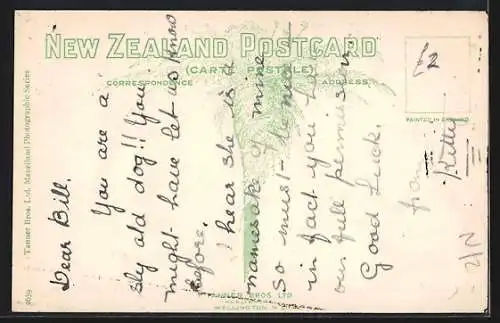 NEW ZEALAND POSTCARD
(CARTE POSTALE)
CORRESPONDENCE
ADDRESS
£2
PRINTED IN ENGLAND
Dear Bill.
You are a
sly old dog!! You
might have let us know
before.
I hear she is a
namesake of mine
so must be nice
in fact you have
our full permission
Good Luck.
from
Kitty
2/2
Tanner Bros. Ltd. Maoriland Photographic Series
TANNER BROS LTD
WELLINGTON